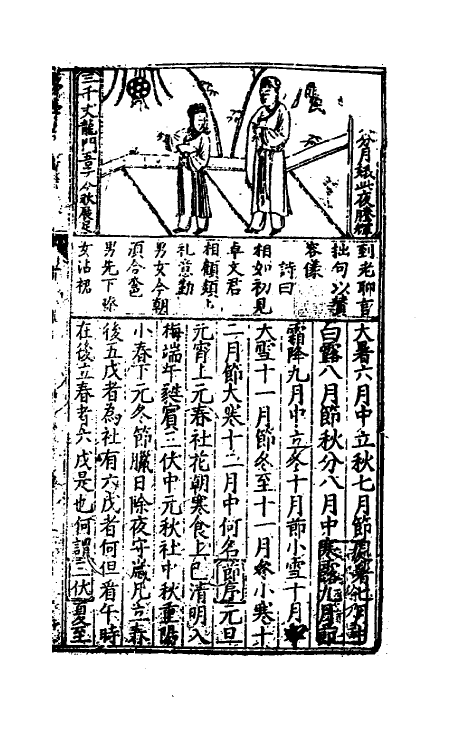 分月紙此夜勝輝
三千丈龍門吾子今歡展足
到光聊盲
拙句以讚
容儀
詩曰
相如初見
卓文君
相顧頻頻
礼意勤
男女今朝
須合卺
男先下珎
女沾裙
大暑六月中立秋七月節處暑七月中
白露八月節秋分八月中寒露九月節
霜降九月中立冬十月節小雪十月中
大雪十一月節冬至十一月中小寒十
二月節大寒十二月中何名節序元旦
元宵上元春社花朝寒食上巳清明入
梅端午蕤賓三伏中元秋社中秋重陽
小春下元冬節臘日除夜守歲凡立春
後五戊者為社有六戊者何但看午時
在後立春者六戊是也何謂三伏夏至